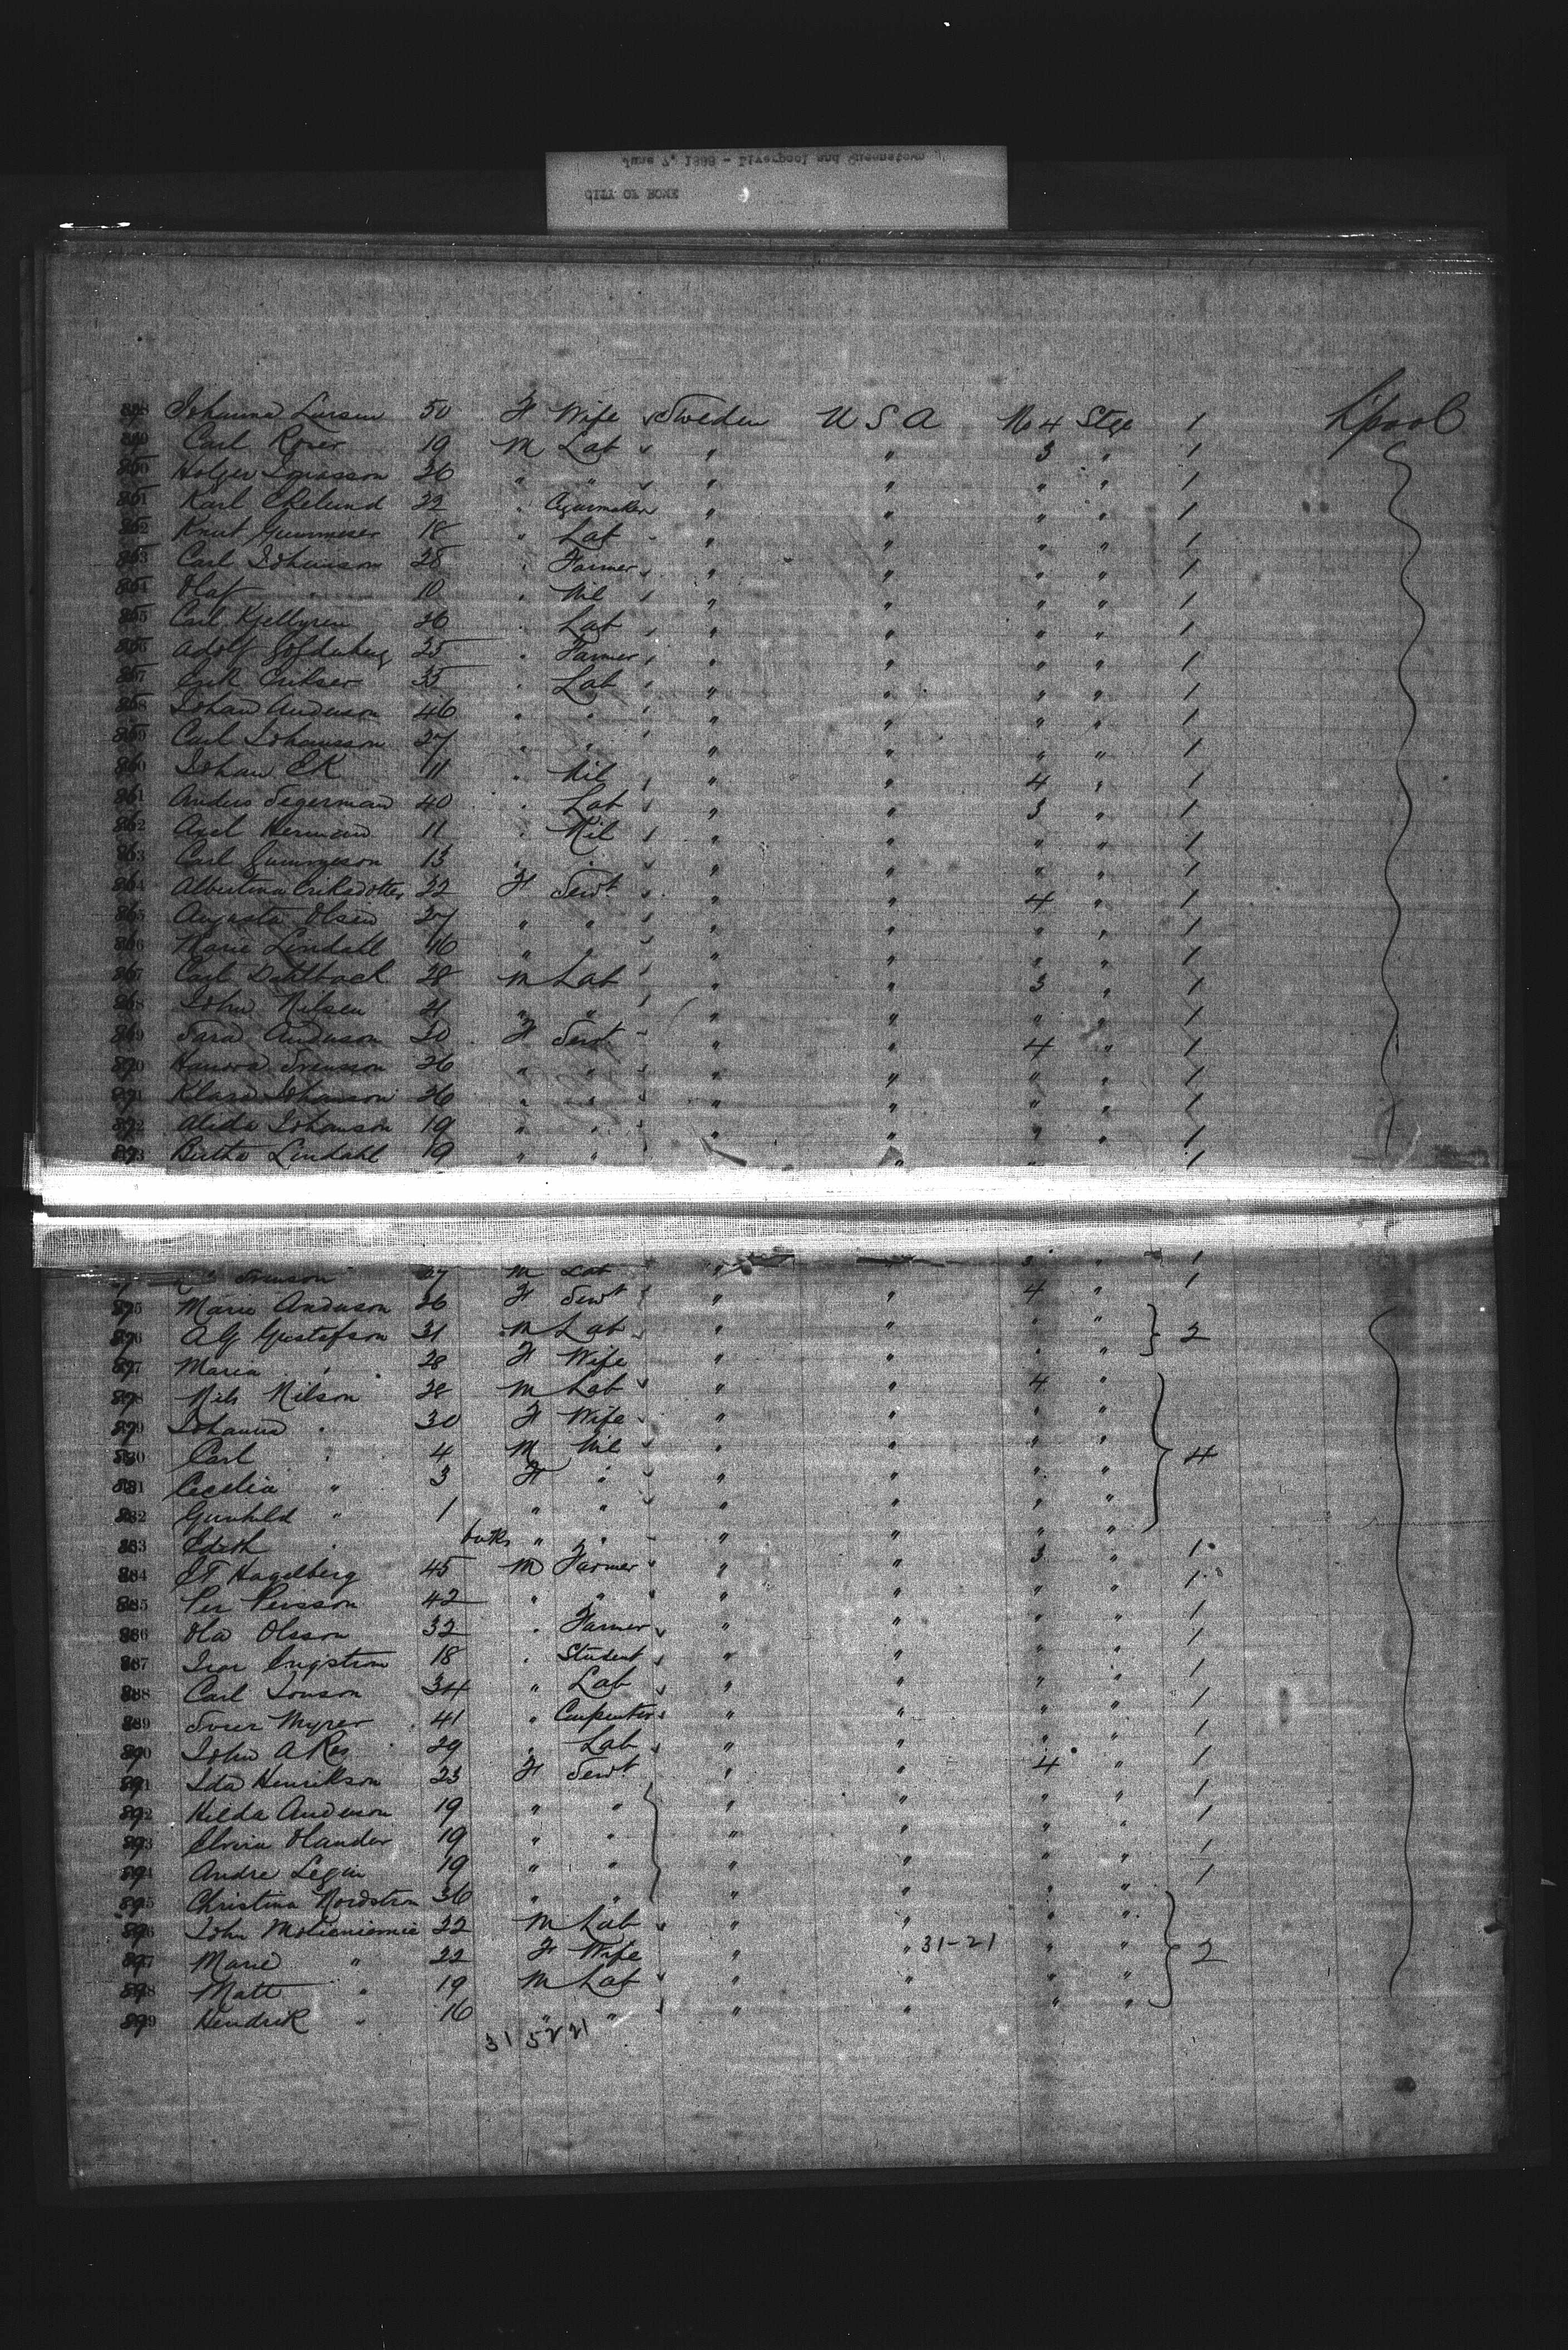 June 7, 1888 - Liverpool and Queenstown
CITY OF ROME
848 Johanna Larsen 50 F Wife Sweden U S A No 4 Stge 1 L'pool
849 Carl Roser 19 M Lab " " 3 " 1
850 Holger Jonasson 26 " " " " " " 1
851 Karl Ekelund 22 " Cigarmaker " " " " 1
852 Knut 18 " Lab " " " " 1
853 Carl Johansson 28 " Farmer " " " " 1
854 Olaf " 10 " Nil " " " " 1
855 Carl Kjellgren 26 " Lab " " " " 1
856 Adolf 25 " Farmer " " " " 1
857 Erik Erikser 35 " Lab " " " " 1
858 Johan Anderson 46 " " " " " " 1
859 Carl Johansson 27 " " " " " " 1
860 Johan Ek 11 " Nil " " 4 " 1
861 Anders Segerman 40 " Lab " " 3 " 1
862 Axel Hermand 11 " Nil " " " " 1
863 Carl 13 " " " " " " 1
864 Albertina Eriksdotter 22 F Servt " " 4 " 1
865 Augusta Olsen 27 " " " " " " 1
866 Marie Lindahl 16 " " " " " " 1
867 Carl Dahlback 28 M Lab " " 3 " 1
868 John Nilsen 21 " " " " " " 1
869 Sara Anderson 30 F Servt " " 4 " 1
870 Svensson 26 " " " " " " 1
871 Klara Johanson 26 " " " " " " 1
872 Alida Johanson 19 " " " " " " 1
873 Bertha Lindahl 19 " " " " " " 1
Svenson 27 M Lab " " 3 " 1
875 Marie Anderson 26 F Servt " " 4 " 1
876 A G Gustafson 31 M Lab " " " " 2
877 Maria " 28 F Wife " " " "
878 Nils Nilson 28 M Lab " " 4 "
879 Johanna " 30 F Wife " " " "
880 Carl " 4 M Nil " " " " 4
881 Cecelia " 3 F " " " " "
882 Gunhild " 1 " " " " " "
883 Edith " " " " " " " 1
884 Hagelberg 45 M Farmer " " 3 " 1
885 Per Persson 42 " " " " " " 1
886 Ola Olsson 32 " Farmer " " " " 1
887 Ivar Engstrom 18 " Student " " " " 1
888 Carl Jonson 34 " Lab " " " " 1
889 Myrer 41 " Carpenter " " " " 1
890 John A 29 " Lab " " " " 1
891 Ida Henrikson 23 F Servt " " 4 " 1
892 Hilda Anderson 19 " " " " " " 1
893 Elvira Olander 19 " " " " " " 1
894 Andre 19 " " " " " " 1
895 Christina Nordstrom 36 " " " " " "
896 John 22 M Lab " " " "
897 Marie " 22 F Wife " " 31-21 " " 2
898 Matt " 19 M Lab " " " "
899 Hendrik " 16 " " " " " "